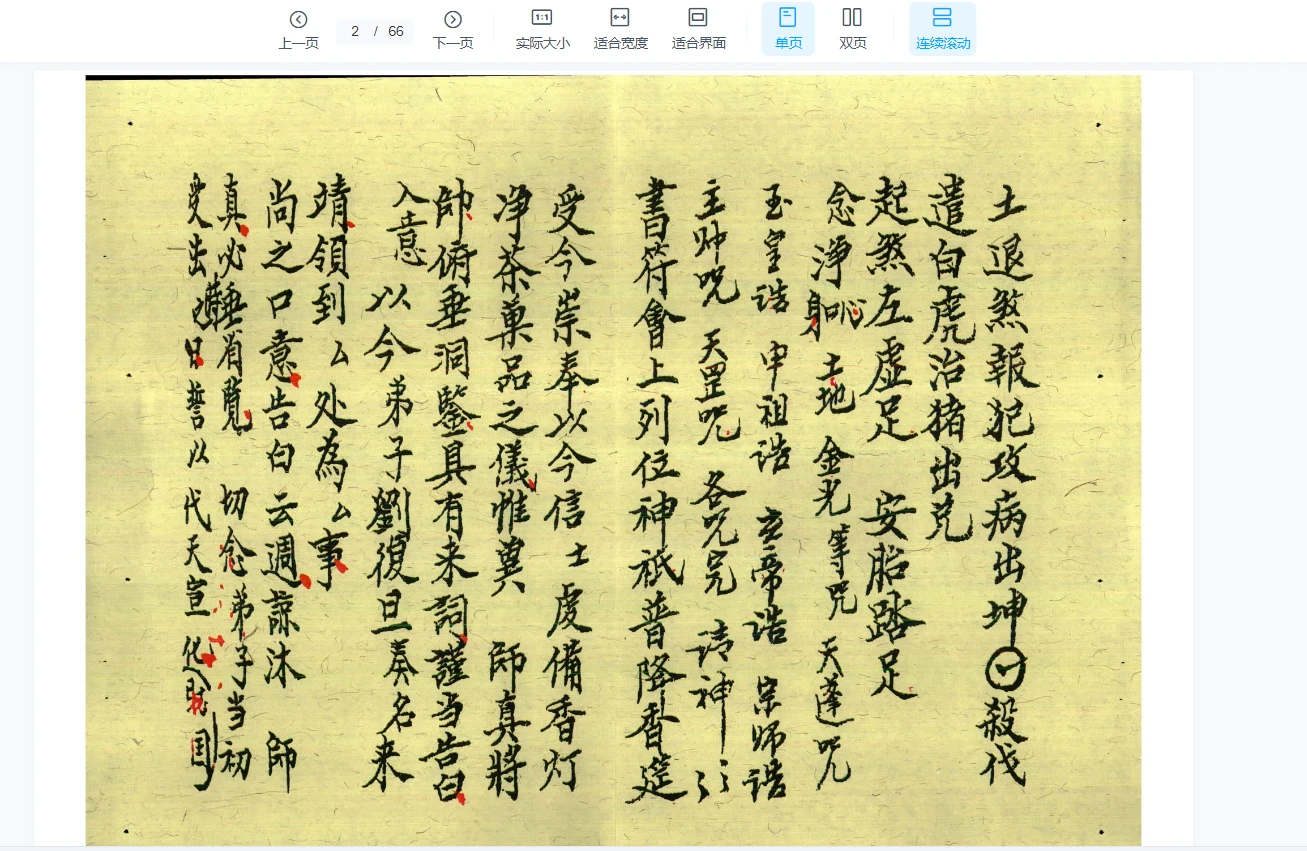 上一页
2 / 66
下一页
1:1
实际大小
适合宽度
适合界面
单页
双页
连续滚动
土退煞報犯攻病出坤殺伐
遣白虎治猪出尧
起煞左虚足 安胎踏足
念淨身吣 土地 金光等咒 天蓬咒
玉皇诰 申祖诰 玄帝诰 宗师诰
主帅咒 天罡咒 各咒完 请神
書符會上列位神祇普降香筵
受今崇奉以今信士虔備香灯
净茶菓品之儀惟奠 師真將
帥俯垂洞鑒具有来詞謹当告白
入意 以今弟子劉復旦奏名来
靖領到厶处為厶事
尚之口意告白云週諒沐 師
真必垂省覽 切念弟子当初
受出日誓以代天宣化